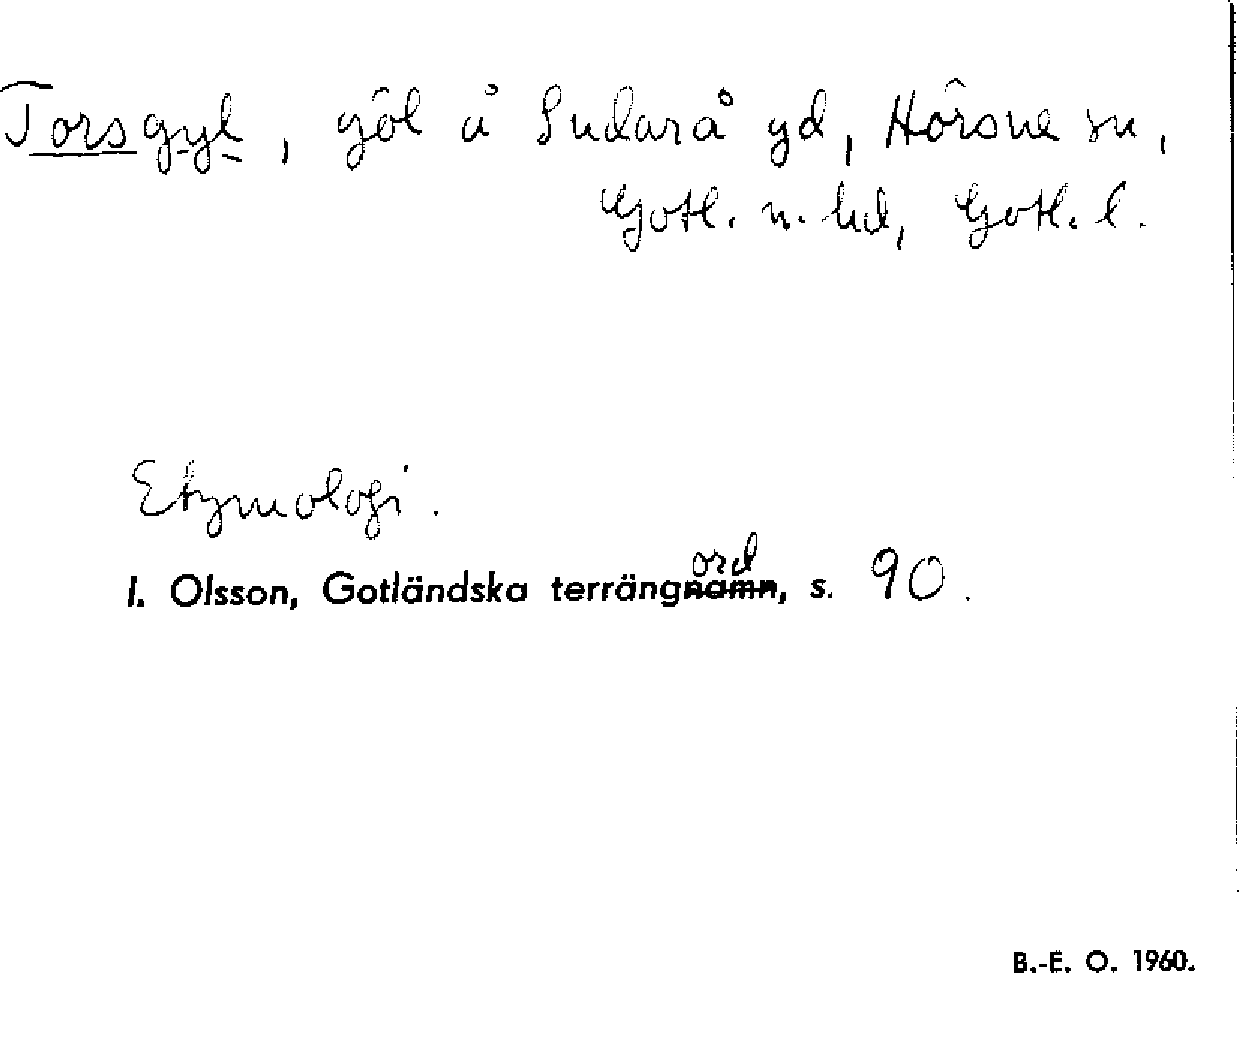 Torsgyl, göl å Sudarå gd, Hörsne sn,
Gotl. n. hd, Gotl. l.
Etymologi.
I. Olsson, Gotländska terrängnamn ord, s. 90.
B.-E. O. 1960.